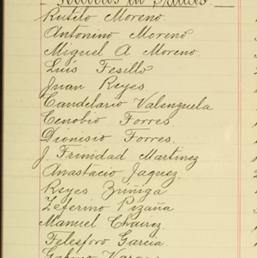 Rutilo Moreno.
Antonino Moreno
Miguel A. Moreno.
Luis Fesillo
Juan Reyes
Candelario Valenzuela
Cenobio Torres
Dionisio Torres.
J. Trinidad Martinez
Anastacio Jaquez
Reyes Zúñiga
Zeferino Pizaña
Manuel Chairez
Telesforo Garcia
Vargas